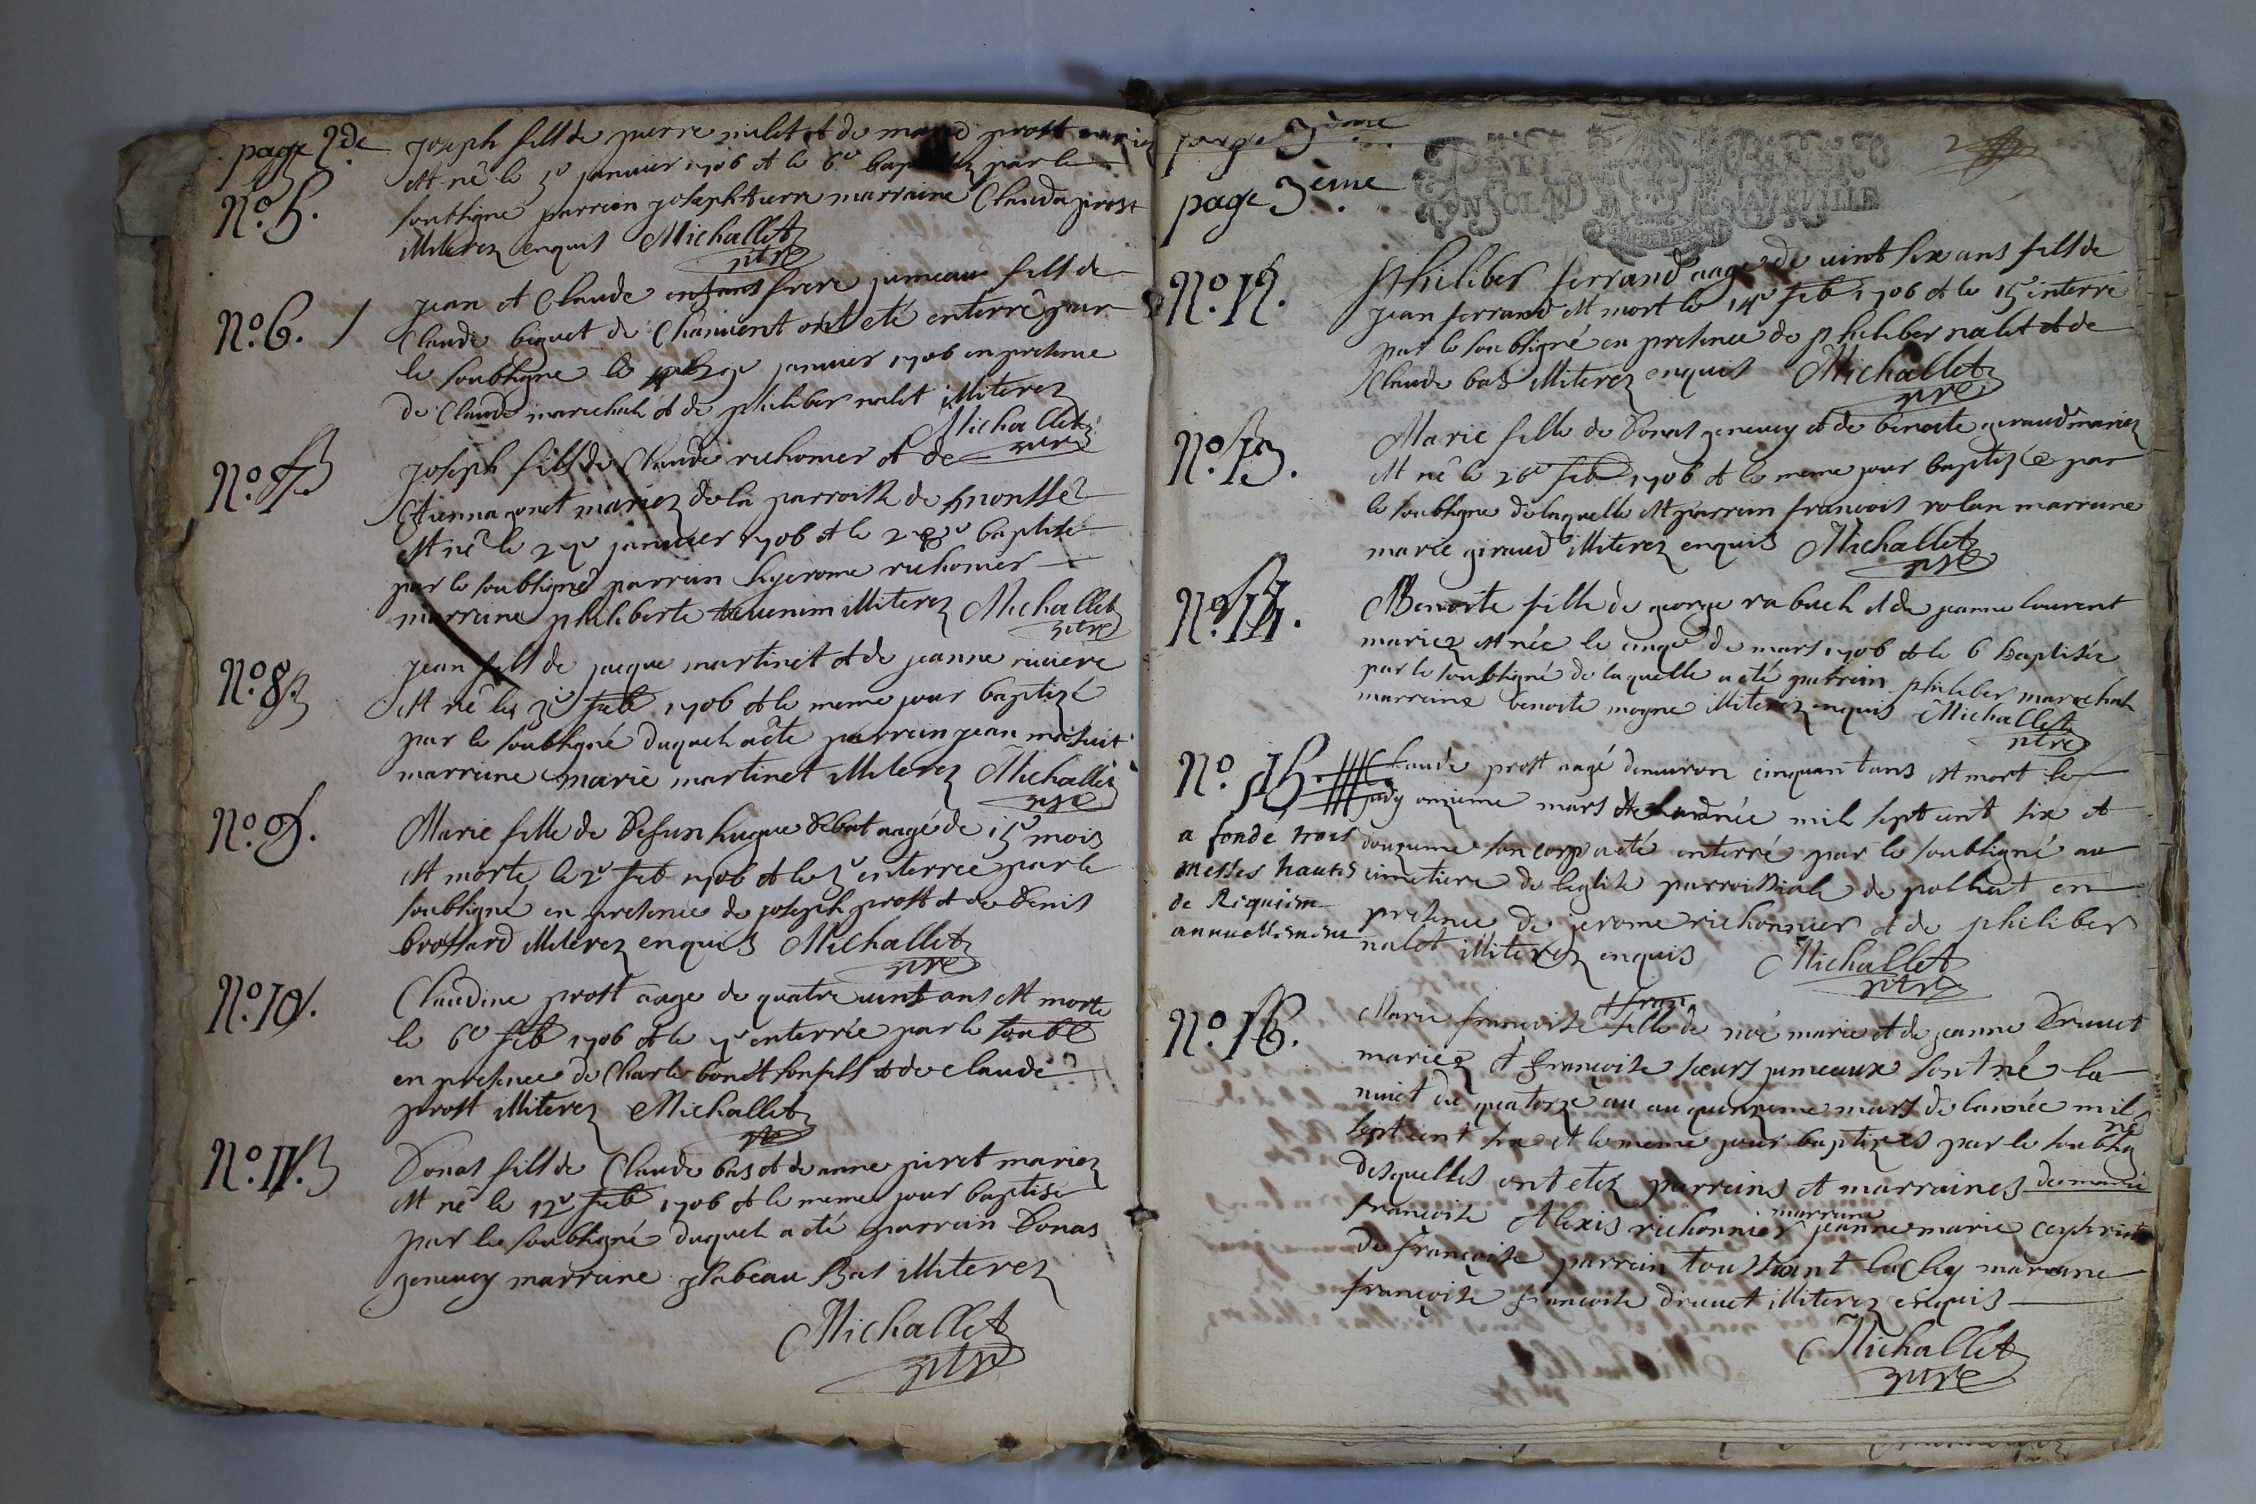 page 2de
No. 5.
joseph fills de pierre nalet et de marie prost mariez
est né le 5e janvier 1706 et le 6e baptisez par le
soubsigne parrein joseph marraine Clauda prost
illiterez enquis Michallet
ptre
No. 6.
jean et Claude enfans frere jumeaux fills de
Claude biguet de ont eté enterré par
le soubsigne le janvier 1706 en presence
de Claude marechal et de philiber nalet illiterez
Michallet
ptre
No. 7
joseph fills de Claude richomier et de
Etienna mariez de la parroisse de
est né le 27e janvier 1706 et le 28e baptisé
par le soubsigné parrein hyerome richomier
marreine philiberte illiterez Michallet
ptre
No. 8
jean fills de jacque martinet et de jeanne riviere
est né le 3e feb 1706 et le meme jour baptizé
par le soubsigné duquel a éte parrein jean
marreine marie martinet illiterez Michallet
ptre
No. 9.
Marie fille de Defun hugue Debat aagé de 15 mois
est morte le 2e feb 1706 et le 3e enterrée par le
soubsigné en presence de joseph prost et de Denis
brossard illiterez enquis Michallet
ptre
No. 10.
Claudine prost aage de quatre uint ans est morte
le 6e feb 1706 et le 7e enterrée par le soubs
en presence de Charle bonet son fils et de claude
prost illiterez Michallet
ptre
No. 11.
Donat fills de Claude bas et de anne piret mariez
est né le 12e feb 1706 et le meme jour baptisé
par le soubsigné duquel a eté parrain Donas
geneuey marreine ysabeau Bas illiterez
Michallet
ptre
page 3eme
page 3eme
2
No. 12.
Philiber ferrand aage de uint six ans fills de
jean ferrand est mort le 14e feb 1706 et le 15e interré
par le soubsigné en presence de philiber nalet et de
Claude bas illiterez enquis Michallet
ptre
No. 13.
Marie fille de Donat geneuey et de benoite giraud mariez
est né le 26e feb 1706 et le meme jour baptizée par
le soubsigne de laquelle est parrein francois rolan marreine
marie giraud illiterez enquis Michallet
ptre
No. 14.
Benoite fille de george rabuel et de jeanne laurent
mariez est née le cinqe de mars 1706 et le 6 baptisée
par le soubsigné de laquelle a eté parrein philiber marechal
marreine benoite moyne illiterez enquis Michallet
ptre
No. 15.
Claude prost aagé denuiron cinquantans est mort le
judy onzieme mars de lannée mil sept cent six et
a fonde trois
messes hautes
de Requiem
annuellement
douzieme son corp a eté enterré par le soubsigné au
cimetiere de leglise parroissiale de polliat en
presence de jerome richonnier et de philiber
nalet illiterez enquis Michallet
ptre
No. 16.
et fran
Marie francoise fille de noé marie et de jeanne Druuet
mariez et francoise soeurs jumeaux sont né la
nuict du quatorze au au quinzieme mars de lannée mil
sept cent six et le meme jour baptizees par le soubsig
né
desquelles ont etez parreins et marraines de marie
francoise Alexis richonnier marreine jeanne marie
de francoise parrein toussaint marreine
francoise francoise druuet illiterez enquis
Michallet
ptre